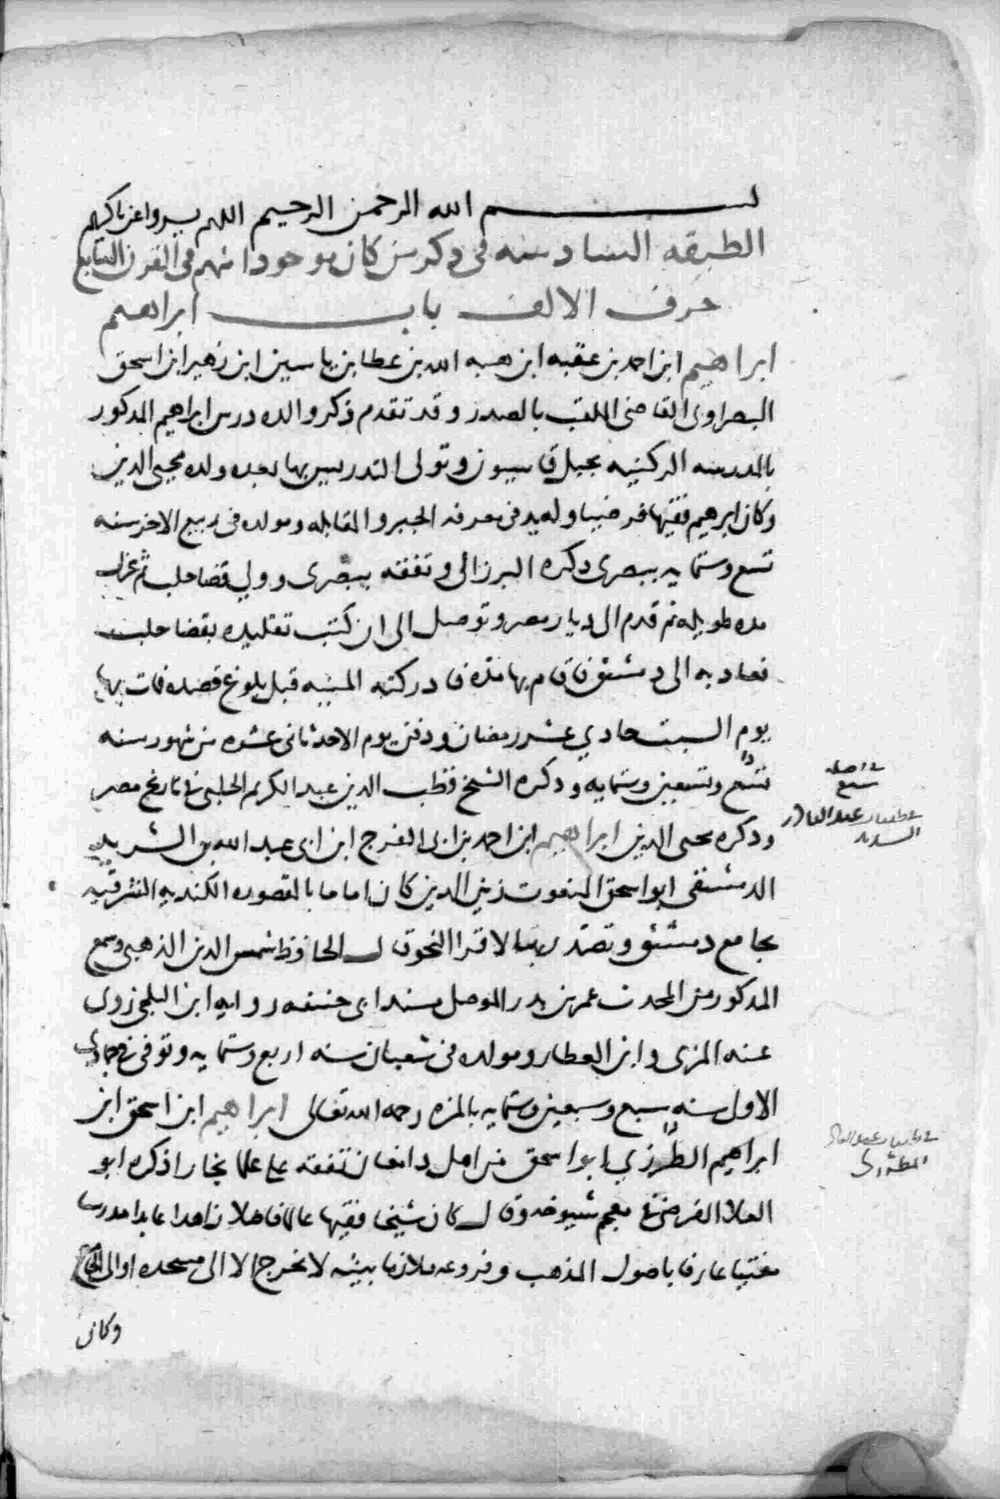 بسم الله الرحمن الرحيم اللهم يسر واعن يا كريم
الطبقه السادسه في ذكر من كان موجودا منهم في القرن السابع
حرف الالف باب ابراهيم
ابراهيم ابن احمد بن عقبه ابن هبه الله بن عطا بن ياسين ابن زهير ابن اسحق
البصراوى القاضى الملقب بالصدر وقد تقدم ذكر والده درس ابراهيم المذكور
بالمدرسه الركنيه بجبل قاسيون وتولى التدريس بها بعده ولده محيى الدين
وكان ابرهيم فقيها فرضيا وله يد فى معرفه الجبر والمقابله ومولده فى ربيع الاخر سنه
تسع وستمايه ببصرى ذكره البرزالى وتفقه ببصرى وولي قضا حلب ثم عزل
مده طويله ثم قدم الى ديار مصر وتوصل الى ان كتب تقليده بقضا حلب
فعاد به الى دمشق فاقام بها مده فادركته المنيه قبل بلوغ قصده فمات بها
يوم السبت حادي عشر رمضان ودفن يوم الاحد ثانى عشره من شهور سنه
تسع وتسعين وستمايه وذكره الشيخ قطب الدين عبد الكريم الحلبى فى تاريخ مصر
وذكره محيى الدين ابراهيم ابن احمد بن ابى الفرج ابن ابى عبد الله بن الشديد
الدمشقى ابو اسحق المنعوت زين الدين كان اماما بالمقصوره الكنديه الشرقيه
بجامع دمشق وتصدر بها لاقرا النحو قال الحافظ شمس الدين الذهبى وسمع
المذكور من المحدث عمر بن بدر الموصلى مسند ابى حنيفه روايه ابن البلخى روى
عنه المزى وابن العطار ومولده فى شعبان سنه اربع وستمايه وتوفى فى جمادى
الاول سنه سبع وسبعين وستمايه بالمزه رحمه الله تعالى ابراهيم ابن اسحق ابن
ابراهيم الطرزي ابو اسحق من اهل دامغان تفقه على علما بخارا ذكره ابو
العلا الفرضى فى معجم شيوخه وقال كان شيخا فقيها عالما فاضلا زاهدا عابدا مدرسا
مفتيا عارفا باصول المذهب وفروعه ملازما بيته لا يخرج الا الى مسجده او الى الجامع
وكان
فى اصله
سبع
فى طبقات عبد القادر
السديد
فى طبقات عبد القادر